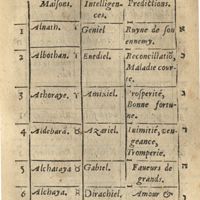 Maisons. Intelligen- Predictions.
ces.
1 Alnath. Geniel Ruyne de son א
ennemy.
2 Albothan. ♈ Enediel. Reconcillatiõ, ב
Maladie cour-
te.
3 Athoraye. ♉ Amixiel. Prosperité, ג
Bonne fortu-
ne.
4 Aldebarã. ♉ Azariel. Inimitié, ven- ד
geance,
Tromperie.
5 Alchataya ♉ Gabiel. Faueurs de ה
grands.
6 Alchaya. ♊ Dirachiel. Amour &